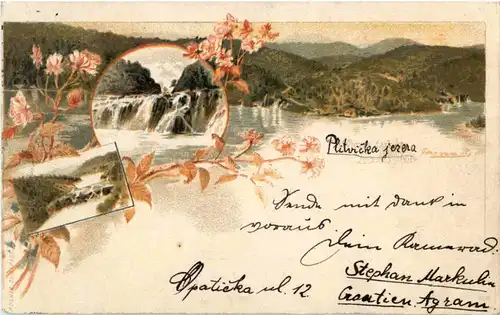 Plitvička jezera
Sende mit dank in
voraus
Dein Kamerad:
Stephan Markulin
Croatien. Agram.
Opatička ul. 12.